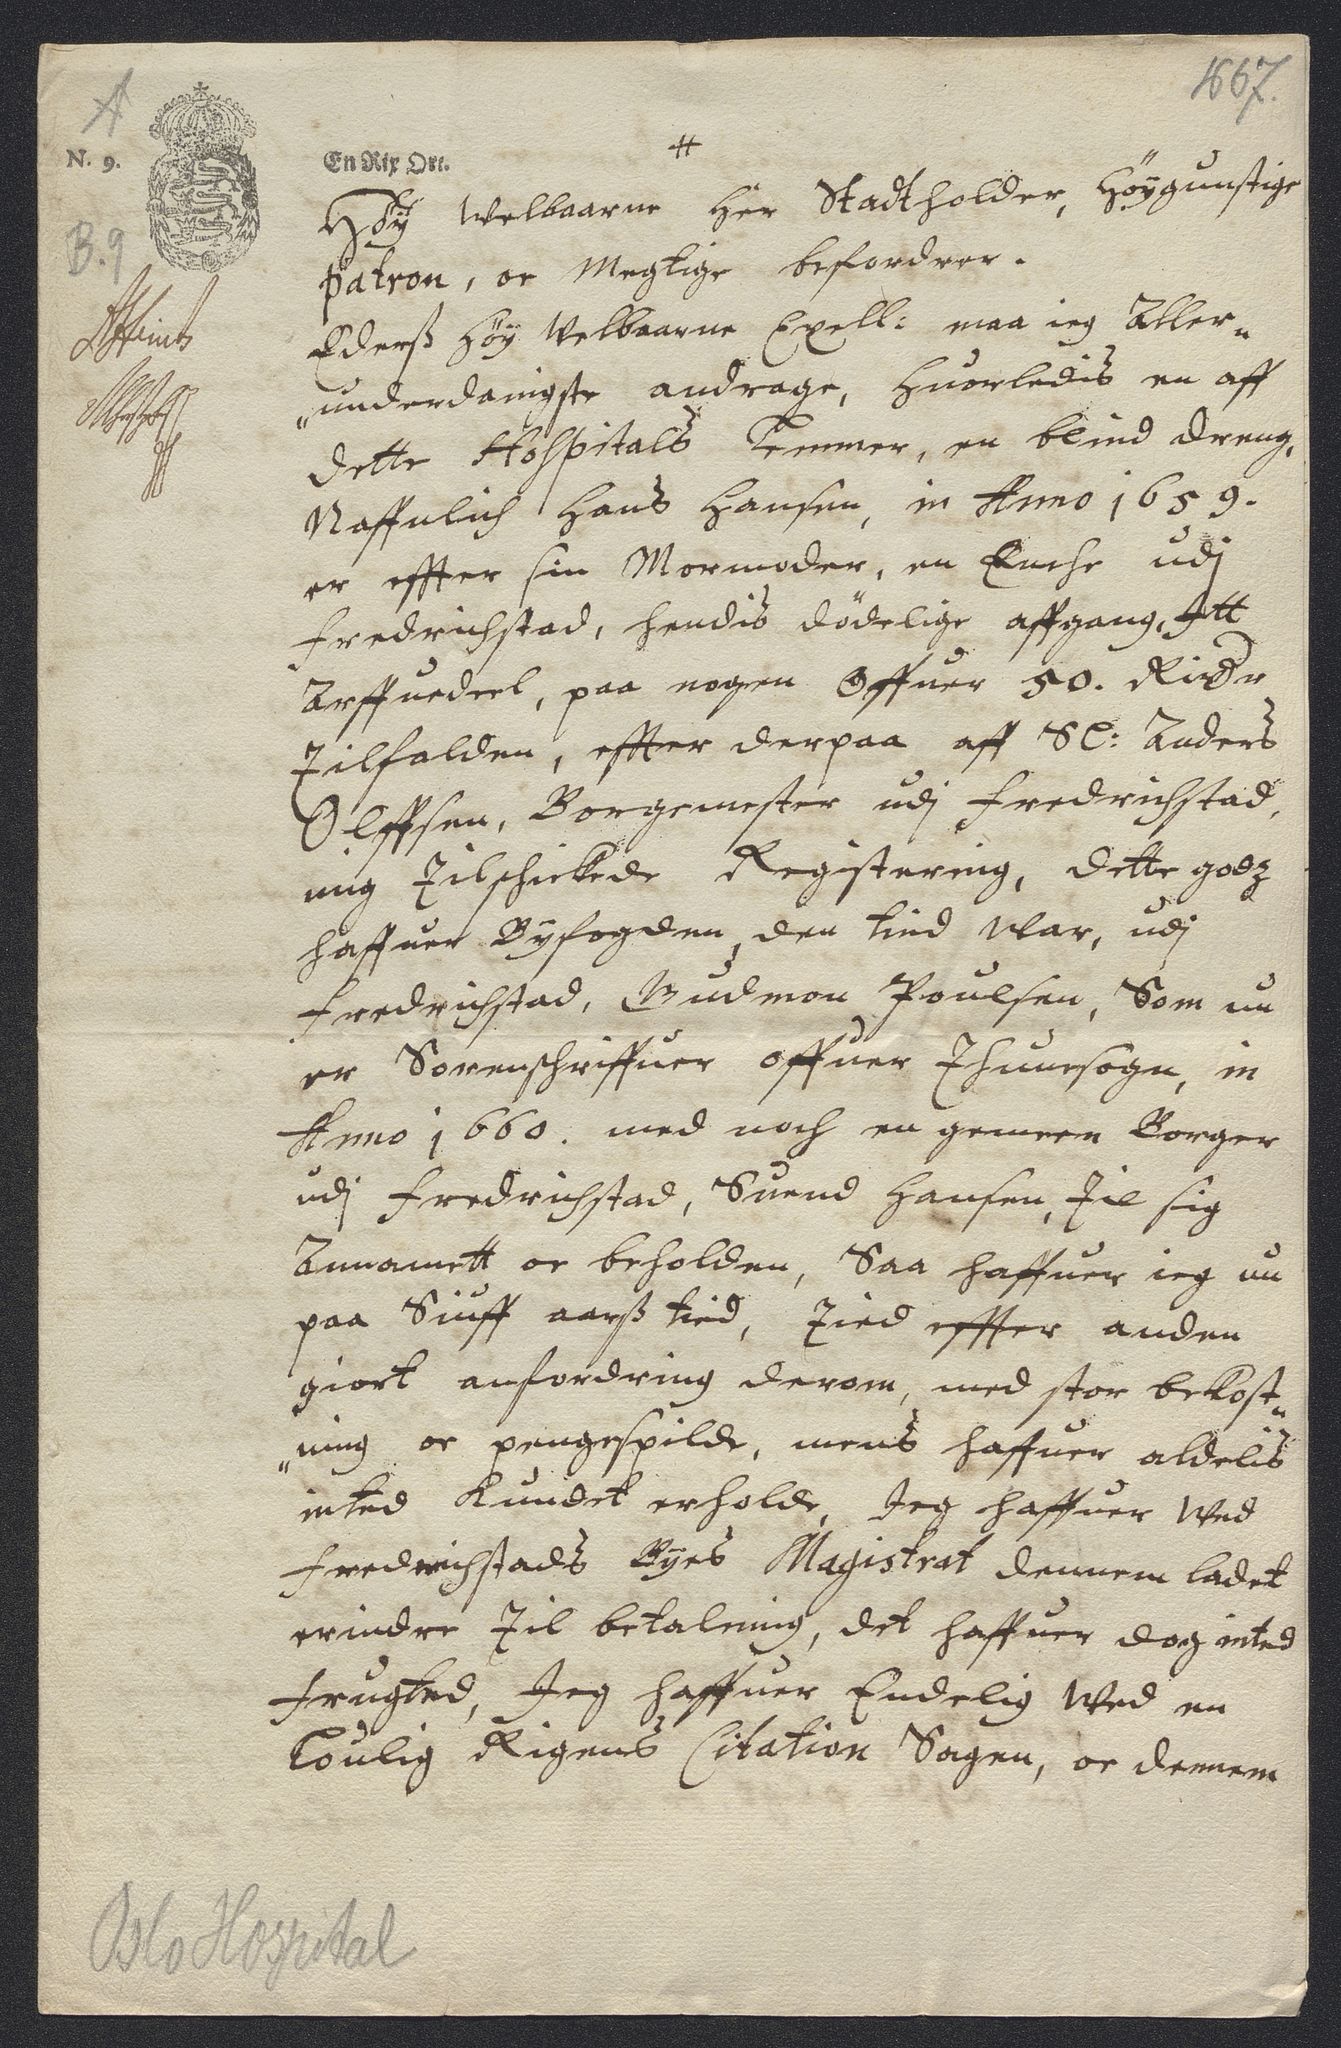 A
1667.
N. 9.
En Rix Ort.
B. 9
Høy Welbaarne Her Stadtholder, Høygunstige
patron, oc Megtige befordrer.
Ederß Høy Welbaarne Excell: maa ieg Aller„
„underdanigste andrage, huorledis en aff
dette Hospitals Lemmer, en blind dreng,
Naffnlich Hans Hansen, in Anno 1659.
er effter sin Mormoder, en Enche udj
Fredrichstad, hendis dödelige affgang, Itt
Arffuedeel, paa nogen Offuer 50. Rixdr
Tilfalden, effter derpaa aff Sl: Anders
Olffsen, Borgemester udj Fredrichstad,
mig Tilschickede Registering, dette godz
haffuer Byfogden, den tiid War, udj
Fredrichstad, Gudmon Poulsen, Som nu
er Sorenschriffuer offuer Thunesogn, in
Anno 1660. med noch en gemeen Borger
udj Fredrichstad, Suend Hansen, Til sig
Annamett oc beholden, Saa haffuer ieg nu
paa Siuff aarß tiid, Tied effter anden
giort anfordring derom, med stor bekost„
„ning oc pengespilde, mens haffuer aldelis
inted kundet erholde, Jeg haffuer Wed
Fredrichstads Byes Magistrat dennem ladet
erindre Til betalning, det haffuer dog inted
frugted, Jeg haffuer Endelig Wed en
Loulig Rigens Citation Sagen, oc dennem
Oslo Hospital